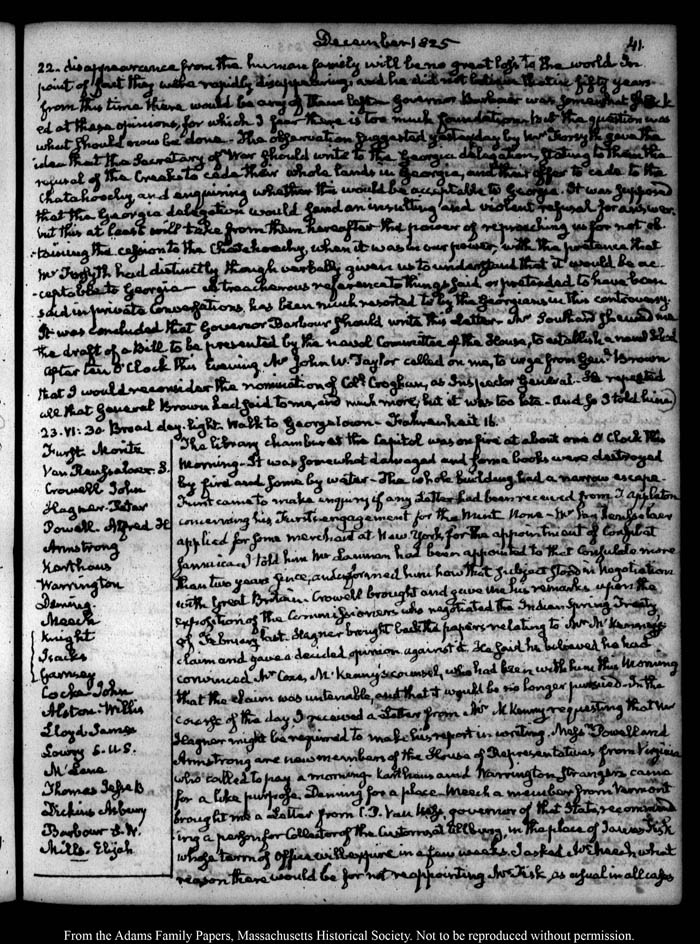 December 1825
41.
22. disappearance from the human family will be no great loss to the world. In
point of fact they were rapidly disappearing, and he did not believe that in fifty years
from this time there would be any of them left. Governor Barbour was somewhat shock
ed at these opinions, for which I fear there is too much foundation. But the question was
what should now be done. The observation suggested yesterday by Mr Forsyth gave the
idea that the Secretary of War should write to the Georgia delegation, stating to them the
refusal of the Creeks to cede their whole lands in Georgia, and their offer to cede to the
Chatahoochy, and enquiring whether this would be acceptable to Georgia. It was supposed
that the Georgia delegation would send an insulting and violent refusal for answer.
but this at least will take from them hereafter the power of reproaching us for not ob-
-taining the cession to the Chatahoochy, when it was in our power, with the pretence that
Mr Forsyth had distinctly though verbally given us to understand that it would be ac
-ceptable to Georgia — A treacherous reference to things said or pretended to have been
said in private Conversations, has been much resorted to by the Georgians in this controversy.
It was concluded that Governor Barbour should write this letter. Mr Southard shewed me
the draft of a Bill to be presented by the naval Committee of the House, to establish a naval School
After ten O'Clock this Evening Mr John W. Taylor called on me, to urge from Genl. Brown
that I would reconsider the nomination of Coll. Croghan, as Inspector General. He repeated
all that General Brown had said to me, and much more, but it was too late. And so I told him)
23. VI: 30. Broad day-light. Walk to Georgetown. Fahrenheit 16.
Furst. Moritz
Van Rensselaer. S.
Crowell John
Hagner. Peter
Powell. Alfred H
Armstrong
Karthaus
Warrington
Denning.
Meech
Knight
Isacks
Garnsey
Cocke John
Alston. Willis
Lloyd James
Lowry S. U.S.
McLane
Thomas Jesse B
Dickins Asbury
Barbour S. W.
Mills. Elijah
The library chamber at the Capitol was on fire at about one O'Clock this
Morning. It was somewhat damaged and some books were destroyed
by fire and some by water. The whole building had a narrow escape.
Furst came to make enquiry if any Letter had been received from T. Appleton
concerning his Furst's engagement for the Mint. None. Mr Van Rensselaer
applied for some merchant at New York, for the appointment of Consul at
Jamaica. I told him Mr had been appointed to that Consulate more
than two years since, and informed him how that subject stood in Negotiation
with Great Britain. Crowell brought and gave me his remarks upon the
exposition of the Commissioners who negotiated the Indian Spring Treaty
of February last. Hagner brought back the papers relating to Mr McKenney's
claim and gave a decided opinion against it. He said he believed he had
convinced Mr Coxe, McKenney's counsel, who had been with him this Morning
that the claim was untenable, and that it would be no longer pursued. In the
course of the day I received a Letter from Mr McKenney requesting that Mr
Hagner might be required to make his report in writing. Messrs Powell and
Armstrong are new members of the House of Representatives from Virginia
who called to pay a morning. Karthaus and Warrington, Strangers came
for a like purpose. Denning for a place. Meech a member from Vermont
brought me a Letter from C. P. Van Ness, governor of that State, recommend
ing a person for Collector of the Customs at, in the place of James Fisk
whose term of Office will expire in a few weeks. I asked Mr Meech what
reason there would be for not reappointing Mr Fisk, as usual in all cases
From the Adams Family Papers, Massachusetts Historical Society. Not to be reproduced without permission.